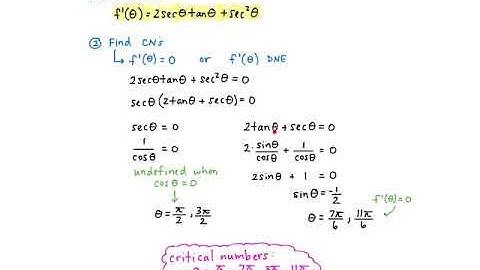 f'(θ) = 2secθtanθ + sec²θ
② Find CNs
↳ f'(θ) = 0 or f'(θ) DNE
2secθtanθ + sec²θ = 0
secθ(2tanθ + secθ) = 0
secθ = 0
1/cosθ = 0
undefined when
cosθ = 0
θ = π/2, 3π/2
2tanθ + secθ = 0
2·sinθ/cosθ + 1/cosθ = 0
2sinθ + 1 = 0
sinθ = -1/2
f'(θ) = 0
θ = 7π/6, 11π/6
critical numbers: